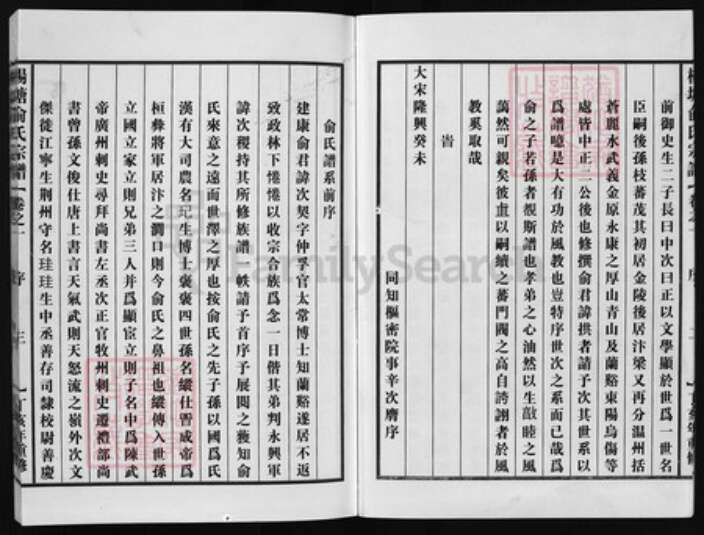 楊塘俞氏宗譜 卷之一 序 三 丁亥年重修
前御史生二子長曰中次曰正以文學顯於世爲一世名
臣嗣後孫枝蕃茂其初居金陵後居汴梁又再分温州括
蒼麗水武義金原永康之厚山青山及蘭谿東陽烏傷等
處皆中正二公後也修撰俞君諱拱者請予次其世系以
爲譜噫是大有功於風教也豈特序世次之系而已哉爲
俞之子若孫者覩斯譜也孝弟之心油然以生敦睦之風
藹然可親矣彼以嗣續之蕃門閥之高自誇詡者於風
教奚取哉
旹
大宋隆興癸未
同知樞密院事辛次膺序
俞氏譜系前序
建康俞君諱次契字仲孚官太常博士知蘭谿遂居不返
致政林下惓惓以收宗合族爲念一日偕其弟判永興軍
諱次稷持其所修族譜一帙請予首序予展閱之獲知俞
氏來意之遠而世澤之厚也按俞氏之先子孫以國爲氏
漢有大司農名生博士襃襃四世孫名縱仕晉成帝爲
桓彝將軍居汴之澗口則今俞氏之鼻祖也縱傳入世孫
立國立家立則兄弟三人并爲顯宦立則子名中爲陳武
帝廣州刺史尋拜尚書左丞次正官牧州刺史遷禮部尚
書曾孫文俊仕唐上書言天氣武則天怒流之嶺外次文
傑徙江寧生荆州守名珪珪生中丞善存司隸校尉善慶
楊塘俞氏宗譜 卷之一 序 三 丁亥年重修
FamilySearch